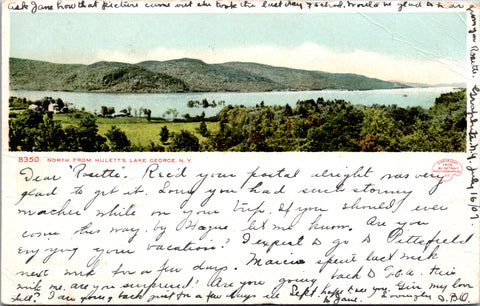 ask Jane how that picture came out she took the last day of school. Would be glad to hear
from you Rosette. Greenwich, N.Y. July 16/07.
8350. NORTH FROM HULETTS, LAKE GEORGE, N.Y.
COPYRIGHT 1905 BY DETROIT
Dear "Rosette". Rec'd your postal alright was very
glad to get it. Sorry you had such stormy
weather while on your trip. If you should ever
come this way, by Wayne let me know. Are you
enjoying your vacation? I expect to go to Pittsfield
next wk for a few days. Mamie spent last wk
with me. are you surprised? Are you going back to this
fall? I am going back just for a few days in Sept. hope to see you. Give my love
to Jane.